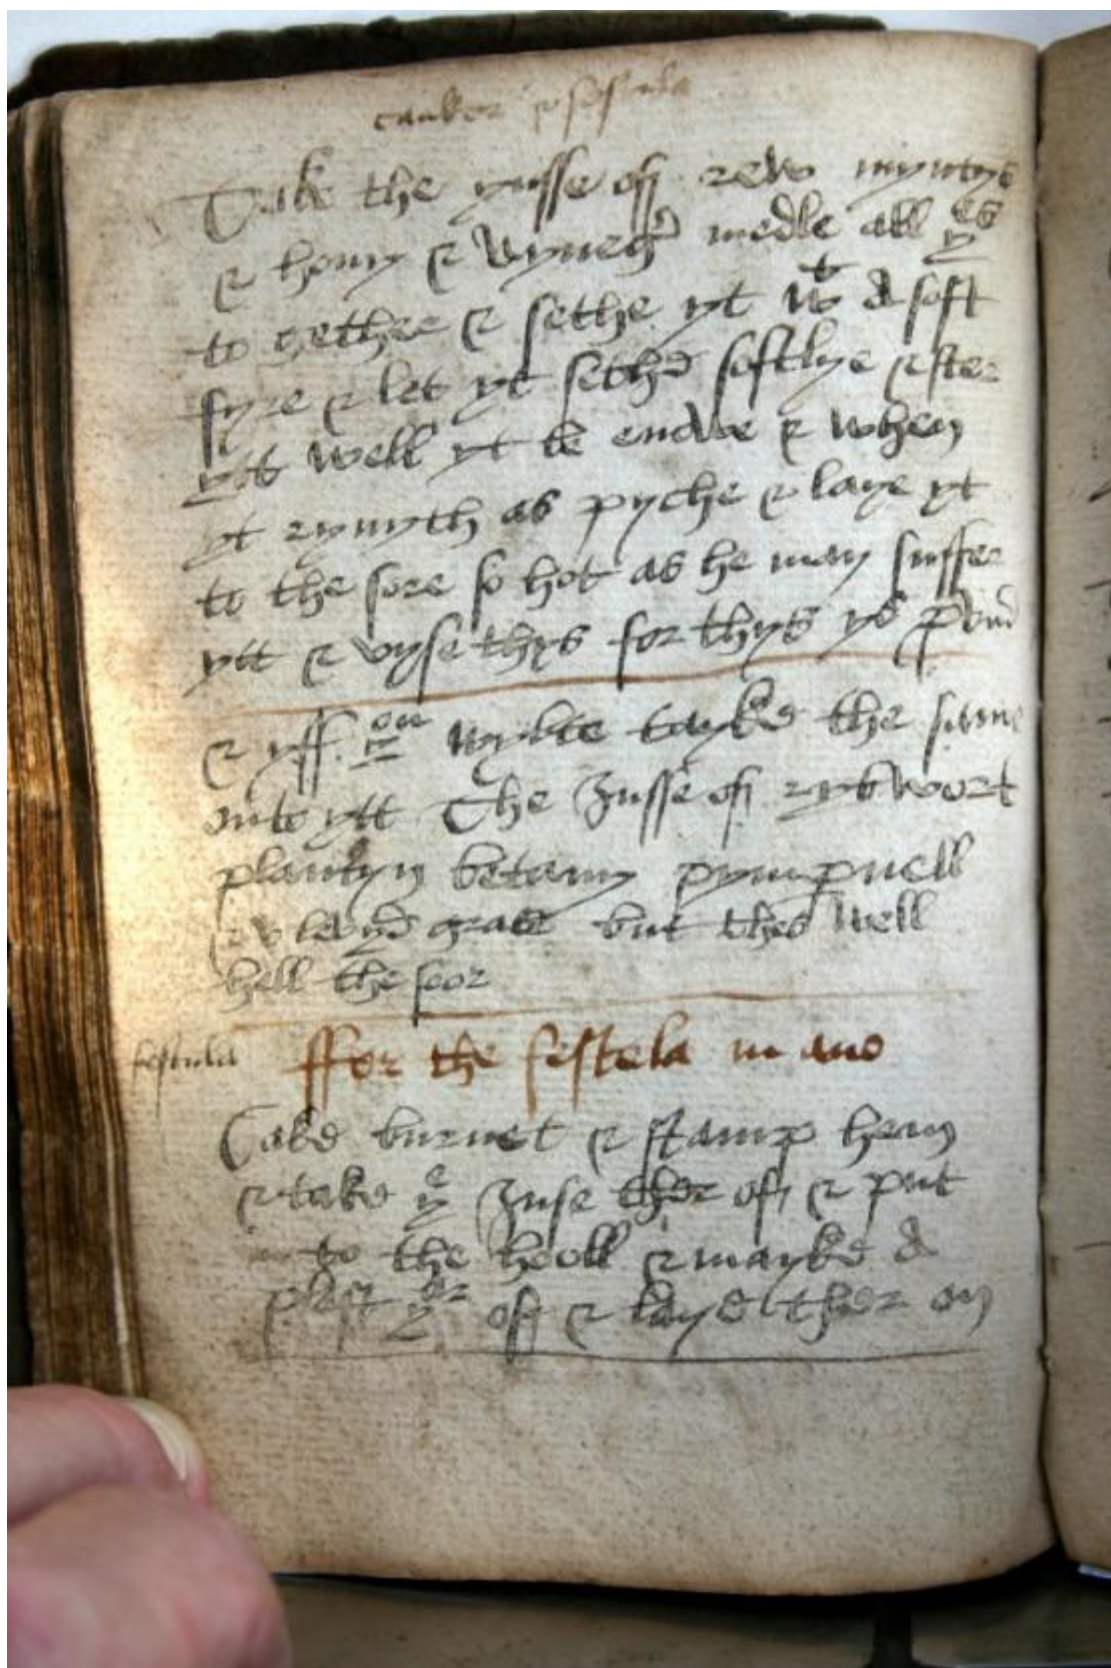 canker & festula
Take the yusse off rew myntys
& hony & vyneg medle all yes
to gether & sethe yt wt a soft
fyre & let yt sethe softlye & ster
ytt well yt be endue & when
yt rynnyth as pyche & laye yt
to the sore so hot as he may suffer
ytt & vyse thys for thys ys
& yff you wylte tayke the same
into ytt The Jusse off rybwort
plantyn betany pympnell
but thes well
hell the soor
festula
ffor the festela in ano
Take burnet & stamp hem
& take ye Juse ther off & put
to the holl & mayke a
plast yer off & laye ther on